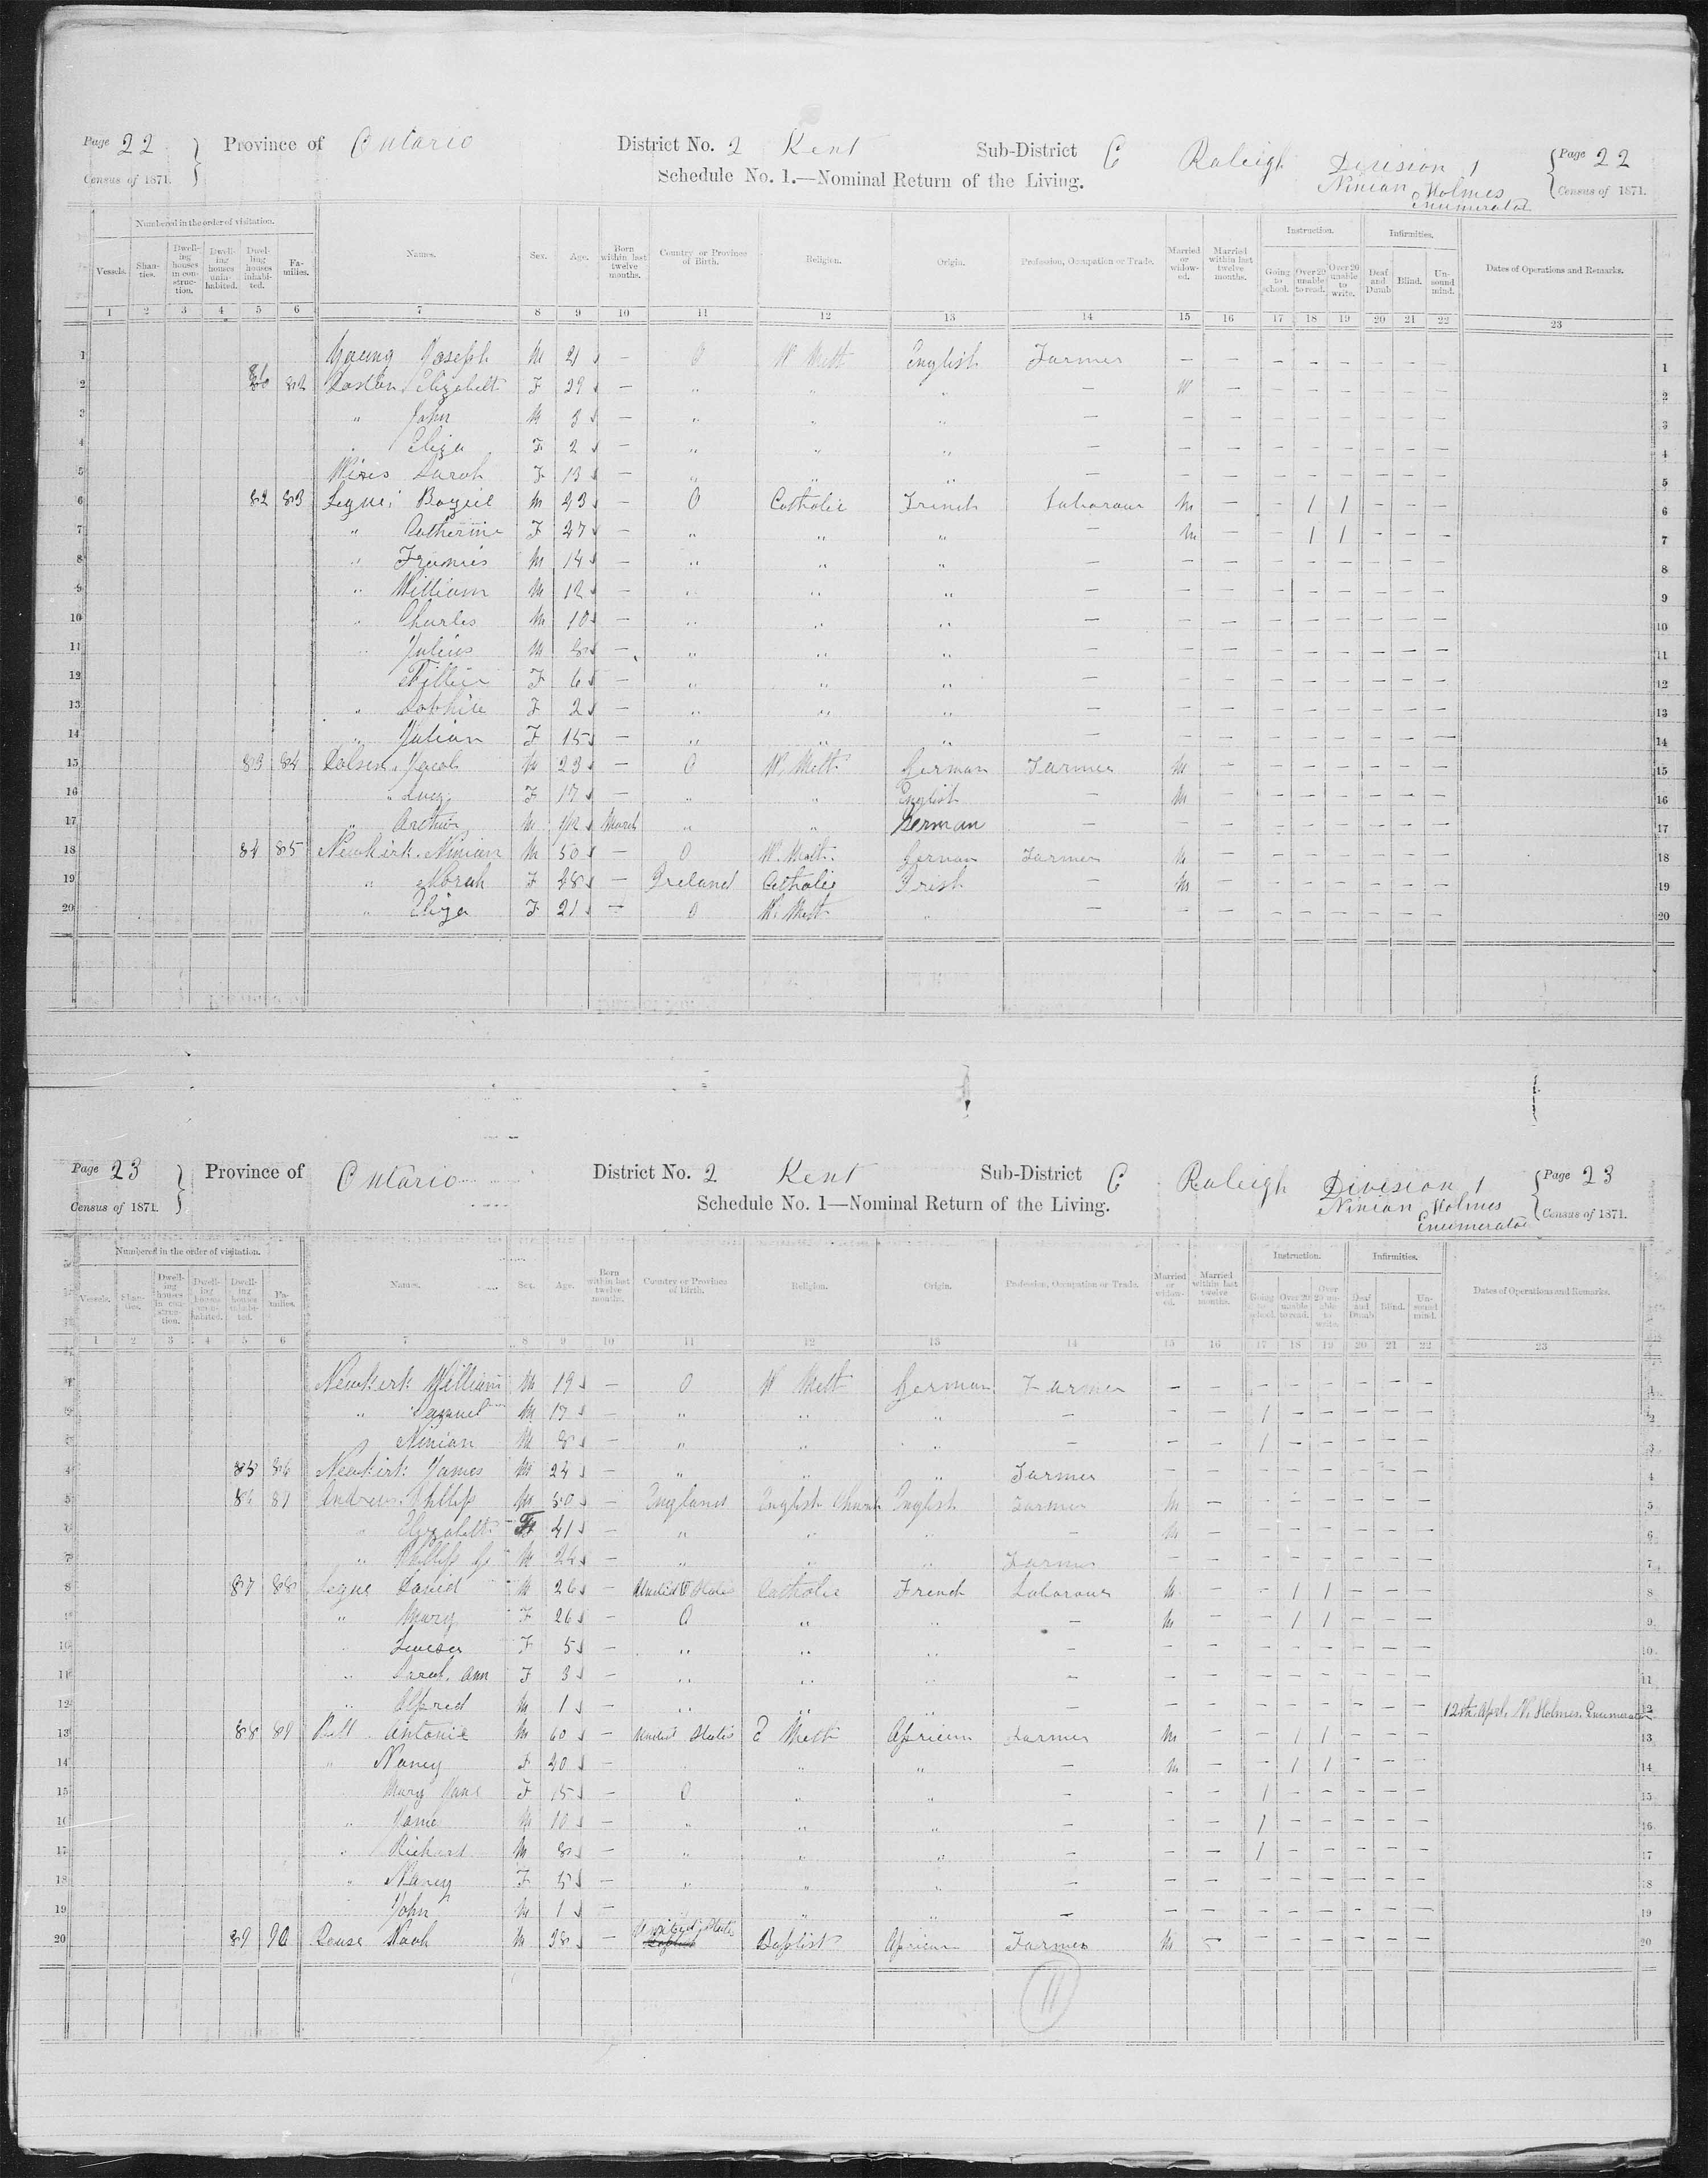 Page 22 Province of Ontario District No. 2 Kent Sub-District C Raleigh Division 1 Page 22
Census of 1871. Schedule No. 1.—Nominal Return of the Living. Ninian Holmes Census of 1871.
Enumerator
Numbered in the order of visitation. Instruction. Infirmities.
Vessels. Shanties. Dwelling houses in construction. Dwelling houses uninhabited. Dwelling houses inhabited. Families. Names. Sex. Age. Born within last twelve months. Country or Province of Birth. Religion. Origin. Profession, Occupation or Trade. Married or widowed. Married within last twelve months. Going to school. Over 20 unable to read. Over 20 unable to write. Deaf and Dumb Blind. Unsound mind. Dates of Operations and Remarks.
1 2 3 4 5 6 7 8 9 10 11 12 13 14 15 16 17 18 19 20 21 22 23
1 Young Joseph M 21 — O W. Meth English Farmer — — — — — — — — 1
2 81 82 Elizabeth F 29 — " " " — W — — — — — — — 2
3 " John M 3 — " " " — — — — — — — — — 3
4 " Eliza F 2 — " " " — — — — — — — — — 4
5 Sarah F 13 — " " " — — — — — — — — — 5
6 82 83 M 43 — O Catholic French Labourour M — — 1 1 — — — 6
7 " Catherine F 47 — " " " — M — — 1 1 — — — 7
8 " Francis M 14 — " " " — — — — — — — — — 8
9 " William M 12 — " " " — — — — — — — — — 9
10 " Charles M 10 — " " " — — — — — — — — — 10
11 " Julius M 8 — " " " — — — — — — — — — 11
12 F 6 — " " " — — — — — — — — — 12
13 " Sophiie F 2 — " " " — — — — — — — — — 13
14 " Julian F 15 — " " " — — — — — — — — — 14
15 83 84 Dolsen Jacob M 23 — O W. Meth. German Farmer M — — — — — — — 15
16 " Lucy F 17 — " " English — M — — — — — — — 16
17 " Arthur M 1/12 March " " German — — — — — — — — — 17
18 84 85 Newkirk Ninian M 50 — O W. Meth. German Farmer M — — — — — — — 18
19 " Norah F 48 — Ireland Catholic Irish — M — — — — — — — 19
20 " Eliza F 21 — O W. Meth " — — — — — — — — — 20
Page 23 Province of Ontario District No. 2 Kent Sub-District C Raleigh Division 1 Page 23
Census of 1871. Schedule No. 1—Nominal Return of the Living. Ninian Holmes Census of 1871.
Enumerator
Numbered in the order of visitation. Instruction. Infirmities.
Vessels. Shanties. Dwelling houses in construction. Dwelling houses uninhabited. Dwelling houses inhabited. Families. Names. Sex. Age. Born within last twelve months. Country or Province of Birth. Religion. Origin. Profession, Occupation or Trade. Married or widowed. Married within last twelve months. Going to school. Over 20 unable to read. Over 20 unable to write. Deaf and Dumb Blind. Unsound mind. Dates of Operations and Remarks.
1 2 3 4 5 6 7 8 9 10 11 12 13 14 15 16 17 18 19 20 21 22 23
1 Newkirk William M 19 — O W Meth German Farmer — — — — — — — — 1
2 " Samuel M 17 — " " " — — — 1 — — — — — 2
3 Ninian M 8 — " " " — — — 1 — — — — — 3
4 85 86 Newkirk James M 24 — " " " Farmer — — — — — — — — 4
5 86 87 Andrews Phillip M 50 — England English Church English Farmer M — — — — — — — 5
6 " Elizabeth F 41 — " " " — M — — — — — — — 6
7 " Phillip Jr M 24 — " " " Farmer — — — — — — — — 7
8 87 88 David M 26 — United States Catholic French Labourour M — — 1 1 — — — 8
9 " Mary F 26 — O " " — M — — 1 1 — — — 9
10 " F 5 — " " " — — — — — — — — — 10
11 " Sarah Ann F 3 — " " " — — — — — — — — — 11
12 " Alfred M 1 — " " " — — — — — — — — — 12th April, N. Holmes. Enumerator 12
13 88 89 Antonie M 60 — United States E Meth African Farmer M — — 1 1 — — — 13
14 " Nancy F 40 — " " " — M — — 1 1 — — — 14
15 Mary Jane F 15 — O " " — — — 1 — — — — — 15
16 " M 10 — " " " — — — 1 — — — — — 16
17 " Richard M 8 — " " " — — — 1 — — — — — 17
18 " Nancy F 5 — " " " — — — — — — — — — 18
19 " John M 1 — " " " — — — — — — — — — 19
20 89 90 Noah M 38 — United States Baptist African Farmer M — — — — — — — 20
11